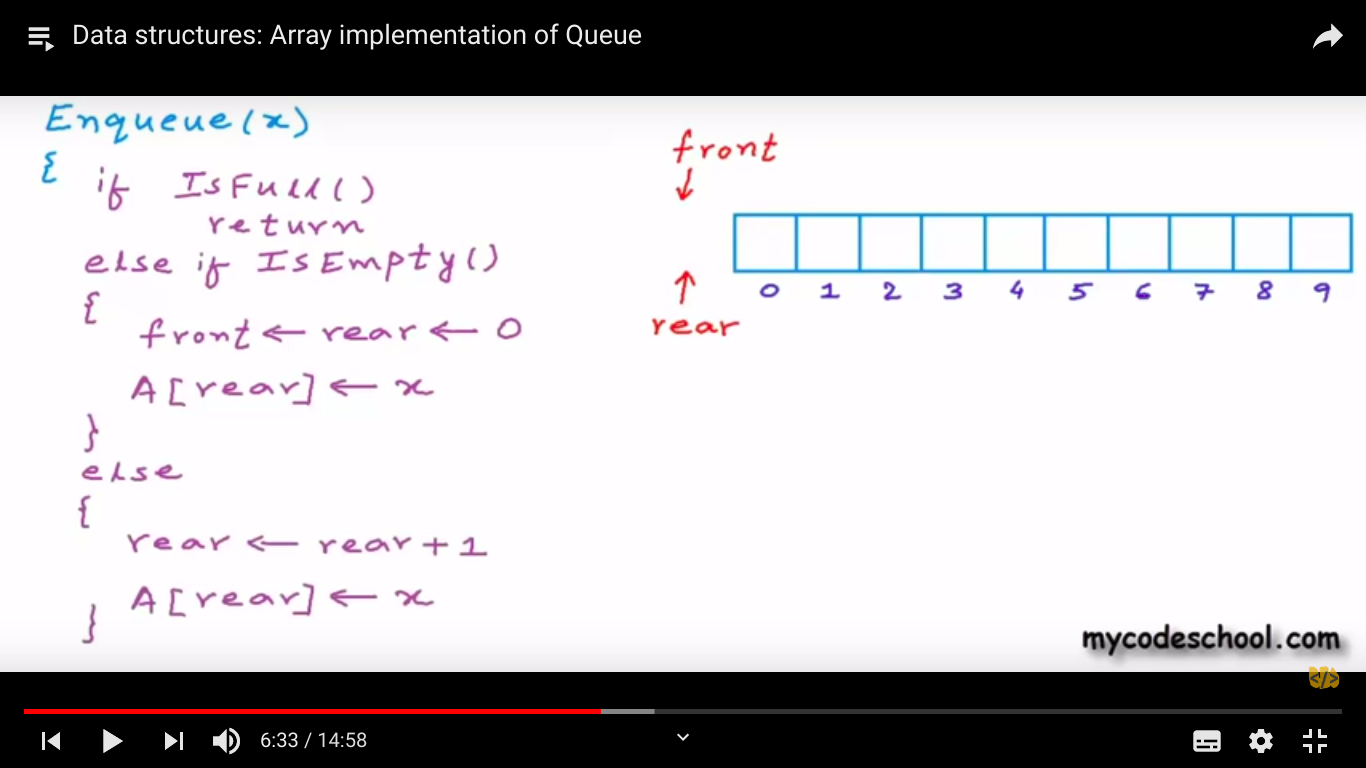 Data structures: Array implementation of Queue
Enqueue(x)
{
if IsFull()
return
else if IsEmpty()
{
front ← rear ← 0
A[rear] ← x
}
else
{
rear ← rear + 1
A[rear] ← x
}
front
↓
↑
0 1 2 3 4 5 6 7 8 9
rear
mycodeschool.com
</>
6:33 / 14:58